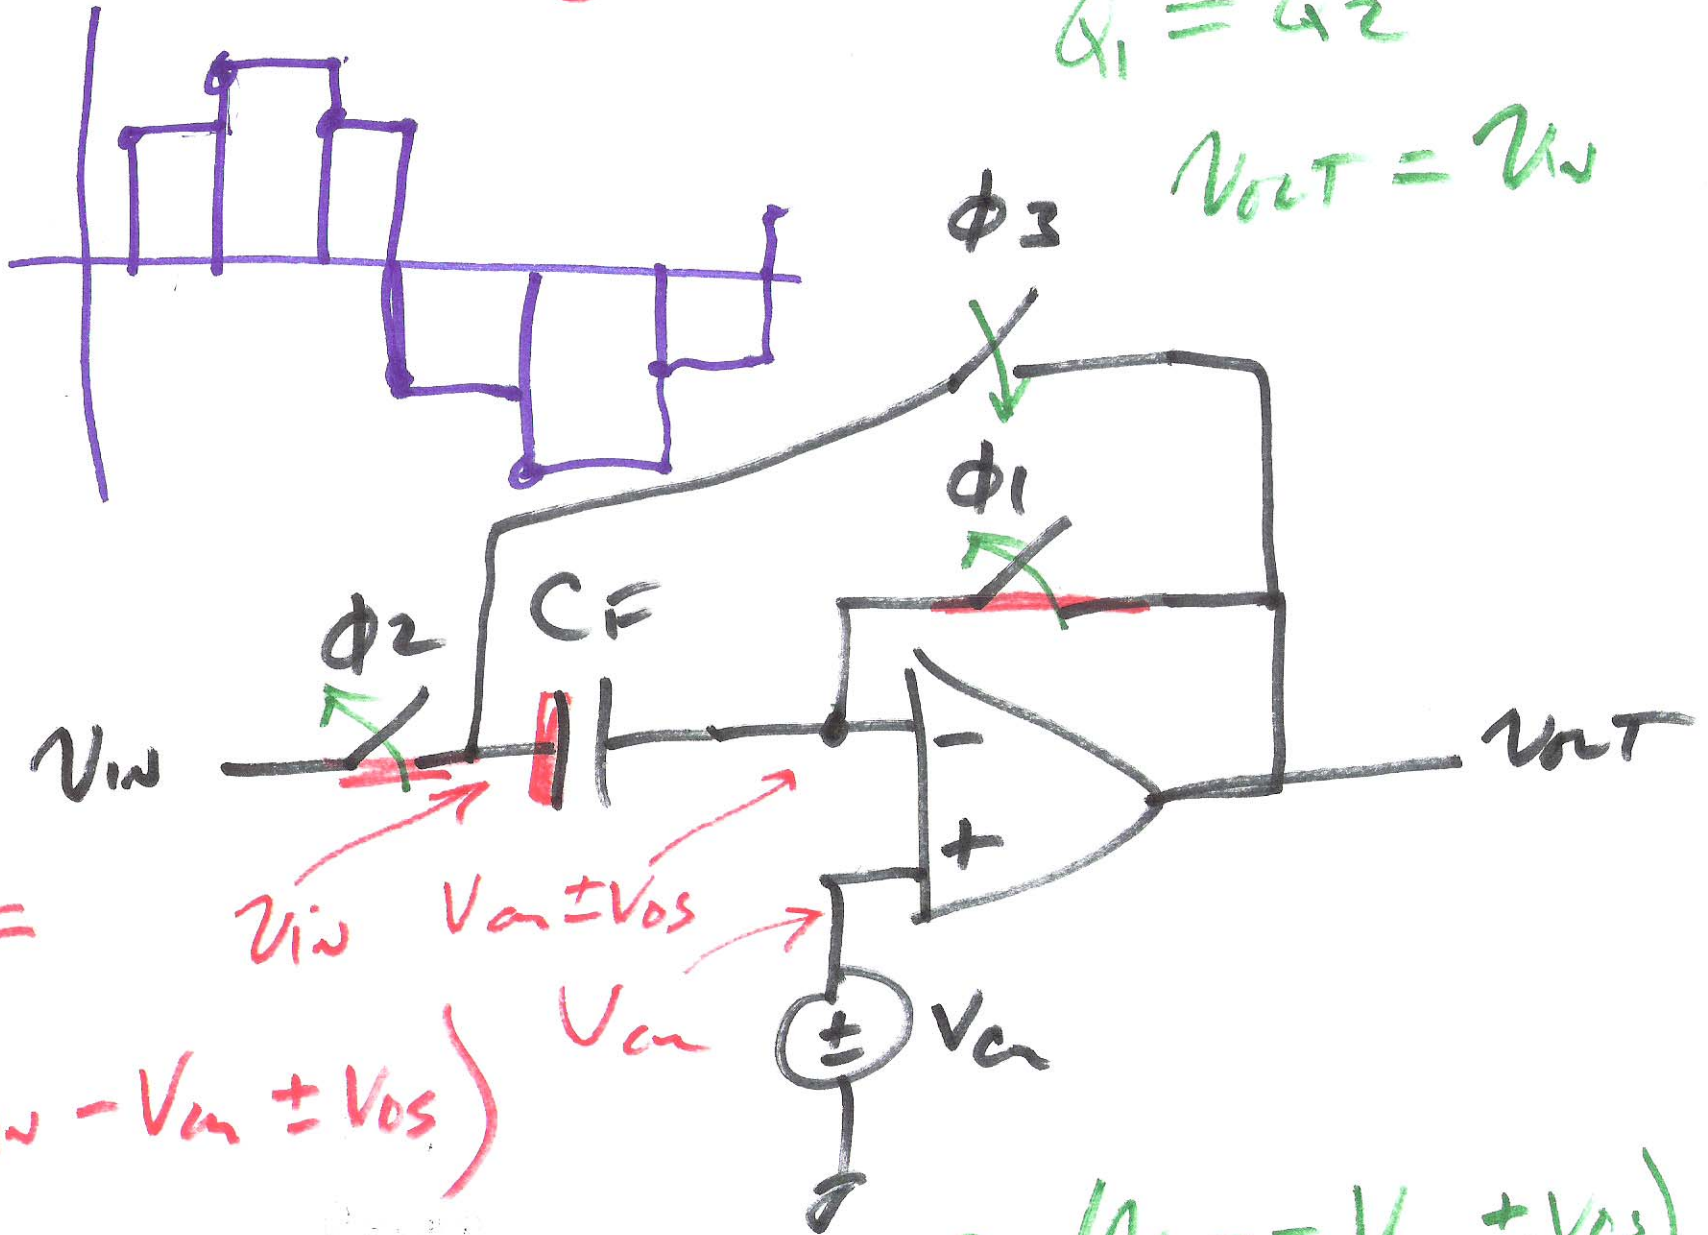 Q1 = Q2
VOUT = VIN
Φ3
Φ1
CF
Φ2
VIN
VOUT
-
+
=
Vin
Vcm ± VOS
Vcm
± Vcm
N - Vcm ± VOS)
+ VOS)